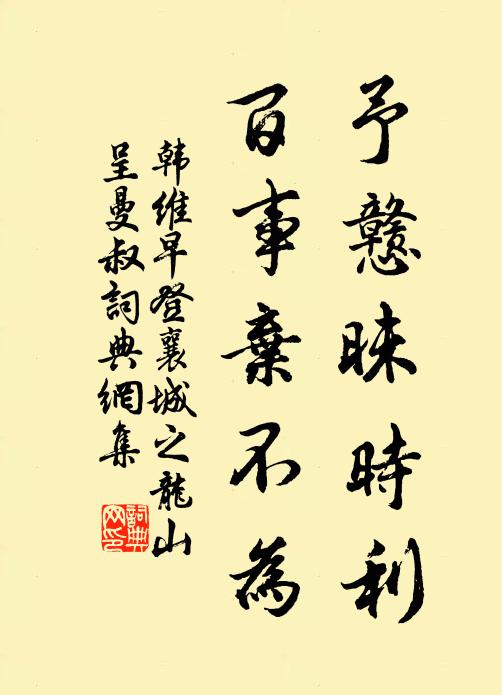 予戆昧時利
百事棄不為
韩维早登襄城之龍山
呈曼叔詞典網集
詞典
网印